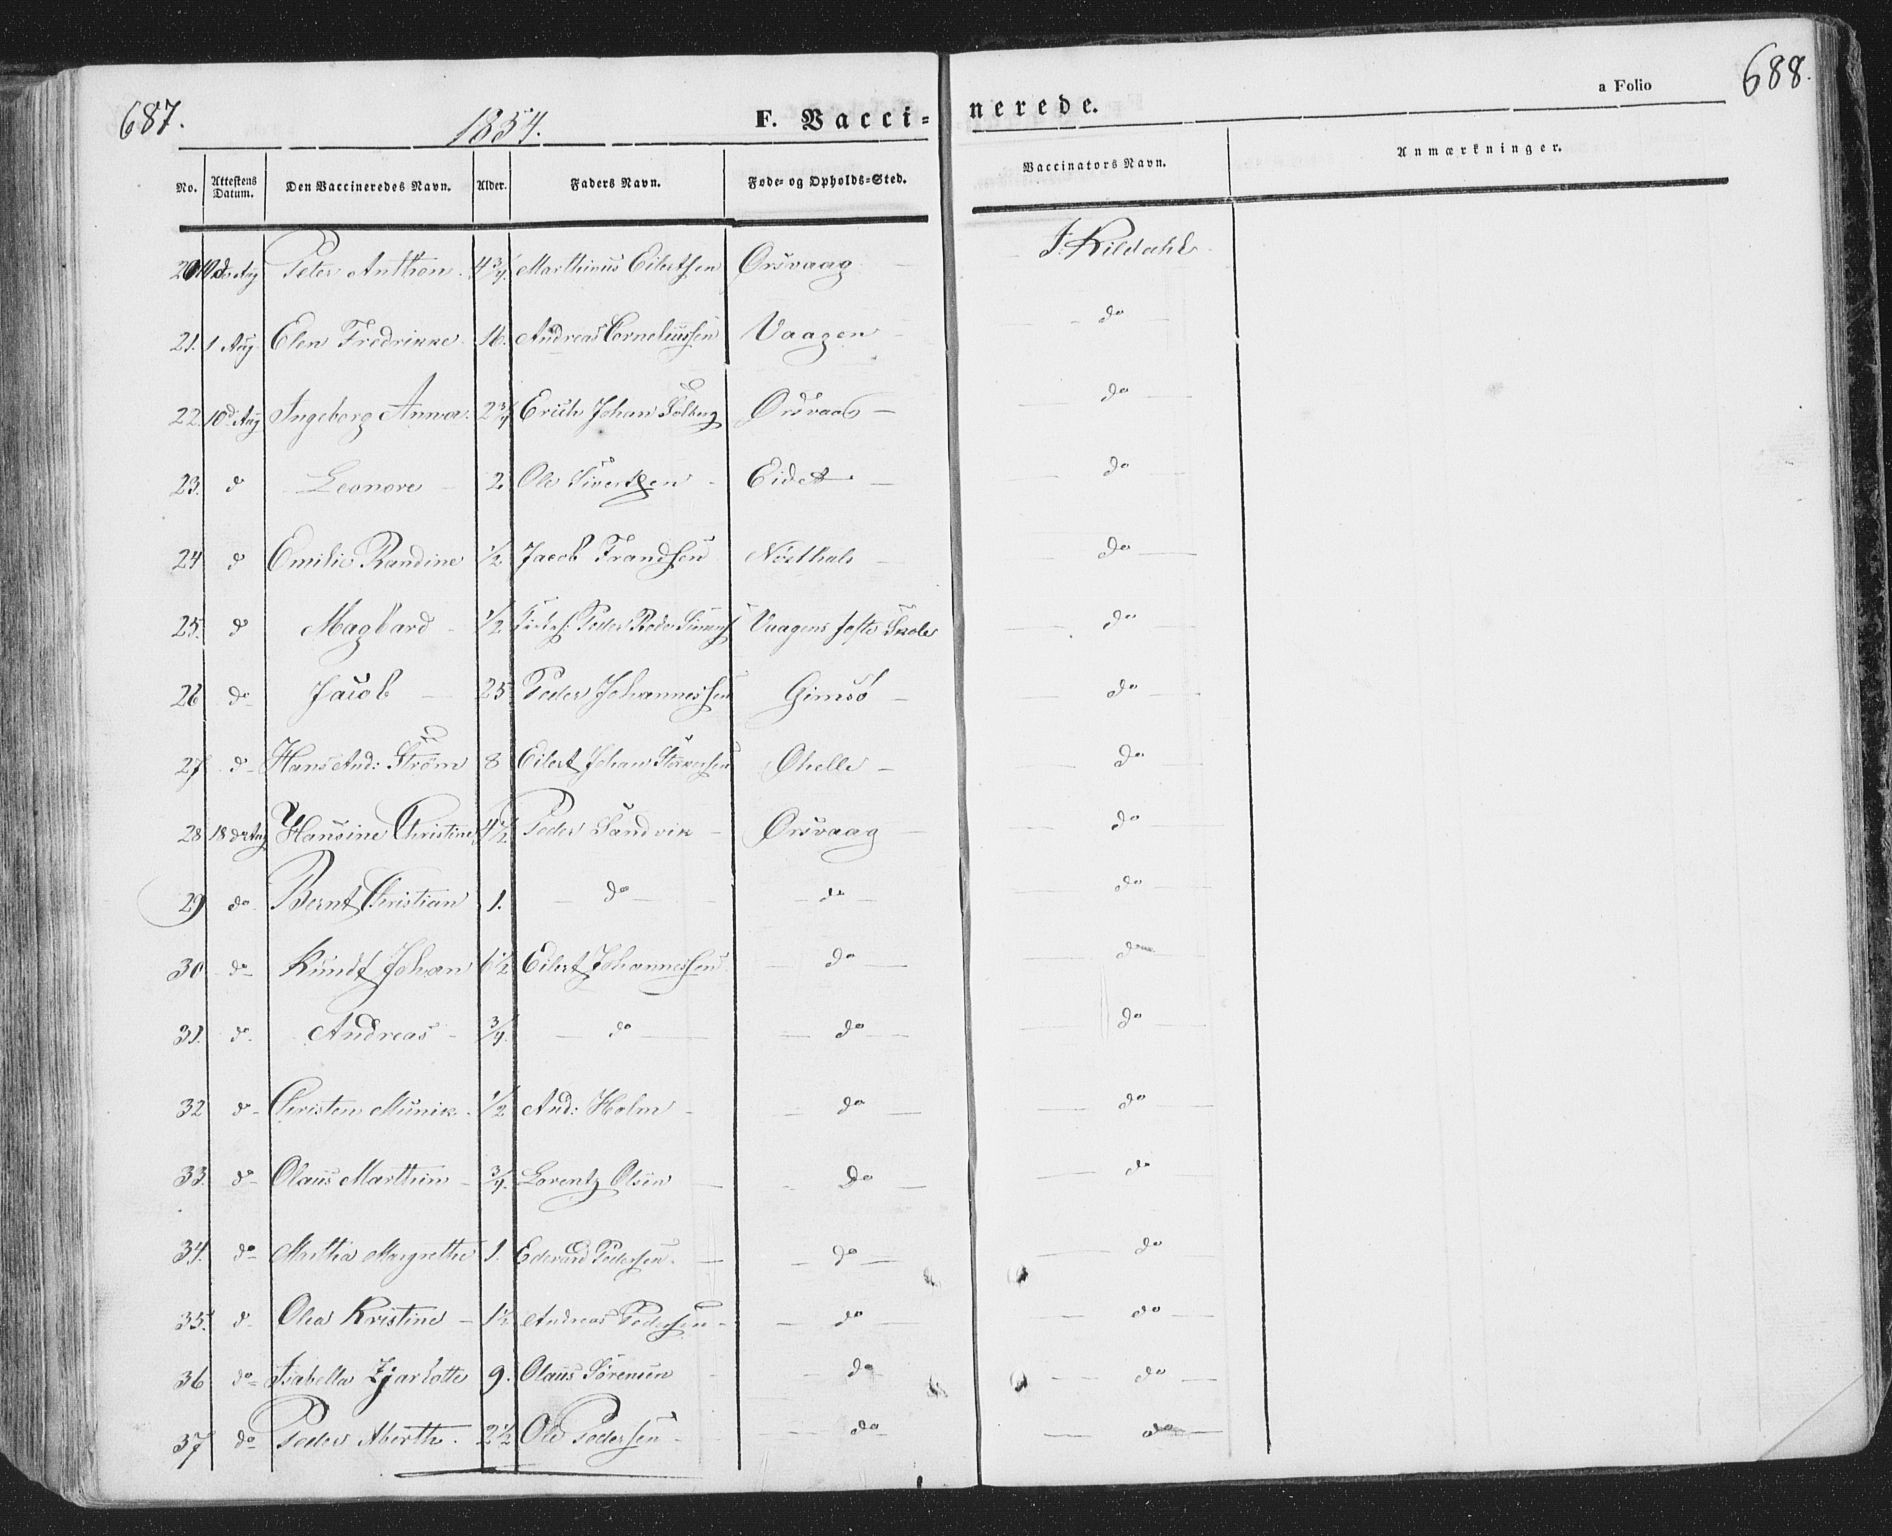 687. 1854. F. Vacci= nerede. a Folio 688.
No. Attestens Datum. Den Vaccineredes Navn. Alder. Faders Navn. Føde= og Opholds=Sted. Vaccinators Navn. Anmærkninger.
20 10 de Aug Peter Anthon. 4 3/4 Marthinus Eilertsen Orsvaag — J. Kildahl
21. 1 Aug. Elen Fredrikke. 16. Andreas Corneliussen Vaagen — do
22. 10 d Aug Ingeborg Anna. 2 3/4 Erich Johan Orsvaag — do
23. d Leonore — 2 Ole Sivertsen - Eidet — do
24 d Emilie Randine 1/2 Jacob Frandsen — do
25. d 1/2 Peder Vaagens faste Skole do
26 do Jacob — 25. Peder Johannessen Gimsø — do
27 d Hans And: Strøm 8 Eilert Johan — do
28 18 de Aug Hansine Christine 4 1/2 Peder Sandvik — Orsvaag — do
29 do Bernt Christian 1. — do — — do — do
30 do Kundt Johan 6 1/2 Eilert Johannessen — do — do
31. d. Andreas - 3/4. — do — — do — do
32 d Christen Munik. 1/2 And: Holm - — do — do
33. d Olaus Marthin — 3/4. Lorentz Olsen — - do — do
34. do Margrethe 1. Edevard Pedersen. — — do — do
35. d. Olea Kristine — 1 1/2 Andreas Pedersen - — do — do
36 do Isabella 9. Olaus Sørensen — do — do
37 do Peder 2 1/2 Ole Pedersen - — do — do